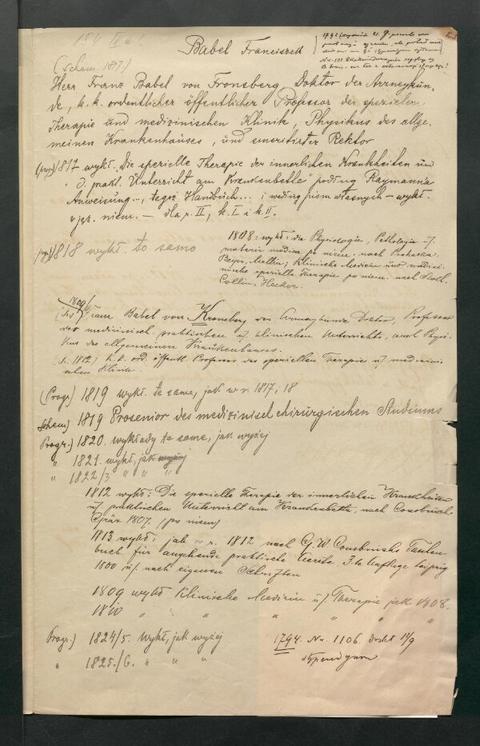 Babel Franciszek
(schem. 1817)
Herr Franz Babel von Fronsberg Doktor der Arzneykun,
de, k. k. ordentlicher öffentlicher Professor der speziellen
Therapie und medizinischen Klinik, Physikus des allge,
meinen Krankenhauses, und emeritirter Rektor
1817 wykł. Die spezielle Therapie der innerlichen Krankheiten und
d. prakt. Unterricht am Krankenbette podług Raymanna
Anweisung..., tegoż Handbuch... i według pism własnych - wykł.
w jęz. niem. - dla r. II, k. I i k. II.
1818 wykł. to samo
1808. wykł: die Physiologie, Pathologie u/
materia medica po niem. nach Prohaska
klinische Medicin und medici-
nische spezielle Therapie po niem. nach
Collin, Hecker.
Franz Babel von Kronsberg, der Arzneykunde Doktor, Professor
des medicinisch praktischen u/ klinischen Unterrichts, auch Physi-
kus des allgemeinen Krankenhauses.
(1812) k. k. ord. öffentl. Professor der speziellen Therapie u/ medicini-
schen Klinik.
(Progr.) 1819 wykł. to samo, jak w r. 1817, 18
Schem) 1819 Prosenior des medizinisch chirurgischen Studiums
Progr.) 1820. wykłady to same, jak wyżej
" 1821. wykł. jak wyżej
" 1822/3 " " "
1812 wykł: Die spezielle Therapie der innerlichen Krankheiten
u/ praktischen Unterricht am Krankenbette, nach Consbruch
1807. (po niem)
1813 wykł: jak w r. 1812 nach G. W. Consbruchs Taschen
buch für angehende praktische Aerzte, Auflage Leipzig
u/ nach eigenen Schriften
1809 wykł klinische Medizin u/ Therapie jak 1808.
1810 " " " "
Progr.) 1824/5. wykł, jak wyżej
" 1825/6. " " "
1794. No. 1106.